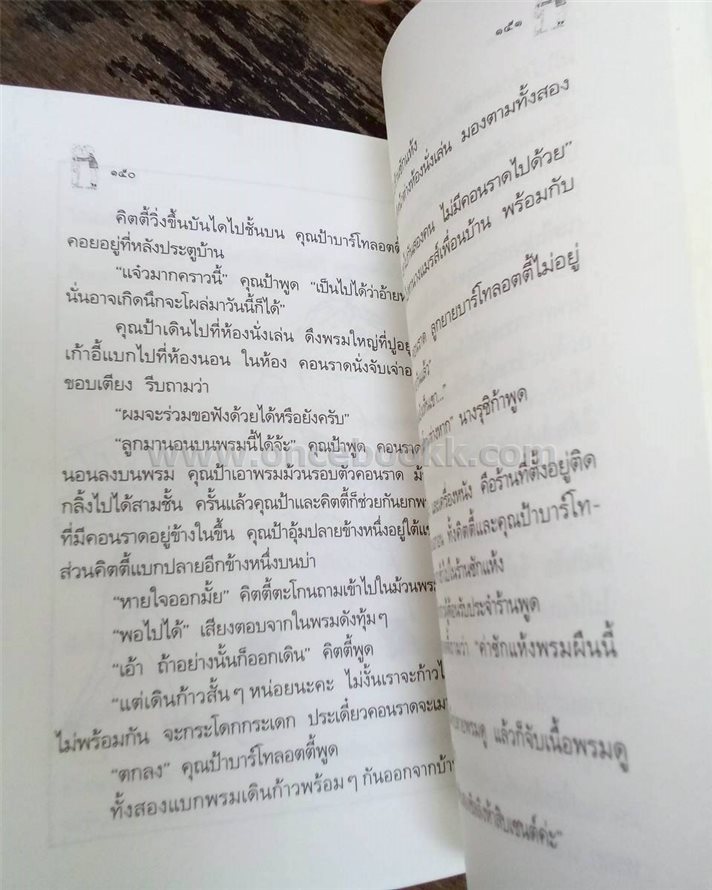 ๑๕๐
คิตตี้วิ่งขึ้นบันไดไปชั้นบน คุณป้าบาร์โทลอตตี้
คอยอยู่ที่หลังประตูบ้าน
“แจ๋วมากคราวนี้” คุณป้าพูด “เป็นไปได้ว่าอ้าย
นั่นอาจเกิดนึกจะโผล่มาวันนี้ก็ได้”
คุณป้าเดินไปที่ห้องนั่งเล่น ดึงพรมใหญ่ที่ปูอยู่
เก้าอี้แบกไปที่ห้องนอน ในห้อง คอนราดนั่งจับเจ่า
ขอบเตียง รีบถามว่า
“ผมจะร่วมขอฟังด้วยได้หรือยังครับ”
“ลูกมานอนบนพรมนี้ได้จ้ะ” คุณป้าพูด คอนราด
นอนลงบนพรม คุณป้าเอาพรมม้วนรอบตัวคอนราด
กลิ้งไปได้สามชั้น ครั้นแล้วคุณป้าและคิตตี้ก็ช่วยกันยก
ที่มีคอนราดอยู่ข้างในขึ้น คุณป้าอุ้มปลายข้างหนึ่งอยู่ใต้
ส่วนคิตตี้แบกปลายอีกข้างหนึ่งบนบ่า
“หายใจออกมั้ย” คิตตี้ตะโกนถามเข้าไปในม้วนพรม
“พอไปได้” เสียงตอบจากในพรมดังทุ้มๆ
“เอ้า ถ้าอย่างนั้นก็ออกเดิน” คิตตี้พูด
“แต่เดินก้าวสั้นๆ หน่อยนะคะ ไม่งั้นเราจะก้าว
ไม่พร้อมกัน จะกระโดกกระเดก ประเดี๋ยวคอนราดจะ
“ตกลง” คุณป้าบาร์โทลอตตี้พูด
ทั้งสองแบกพรมเดินก้าวพร้อมๆ กันออกจากบ้าน
๑๕๑
ซักแห้ง
ห้องนั่งเล่น มองตามทั้งสอง
สองคน ไม่มีคอนราดไปด้วย”
เพื่อนบ้าน พร้อมกับ
ลูกยายบาร์โทลอตตี้ไม่อยู่
แล้ว”
นางรุชิก้าพูด
เครื่องหนัง คือร้านที่ตั้งอยู่ติด
ทั้งคิตตี้และคุณป้าบาร์โท-
ในร้านซักแห้ง
ประจำร้านพูด
“ค่าซักแห้งพรมผืนนี้
พรมดู แล้วก็จับเนื้อพรมดู
ห้าสิบเซนต์ค่ะ”
www.oncebookk.com